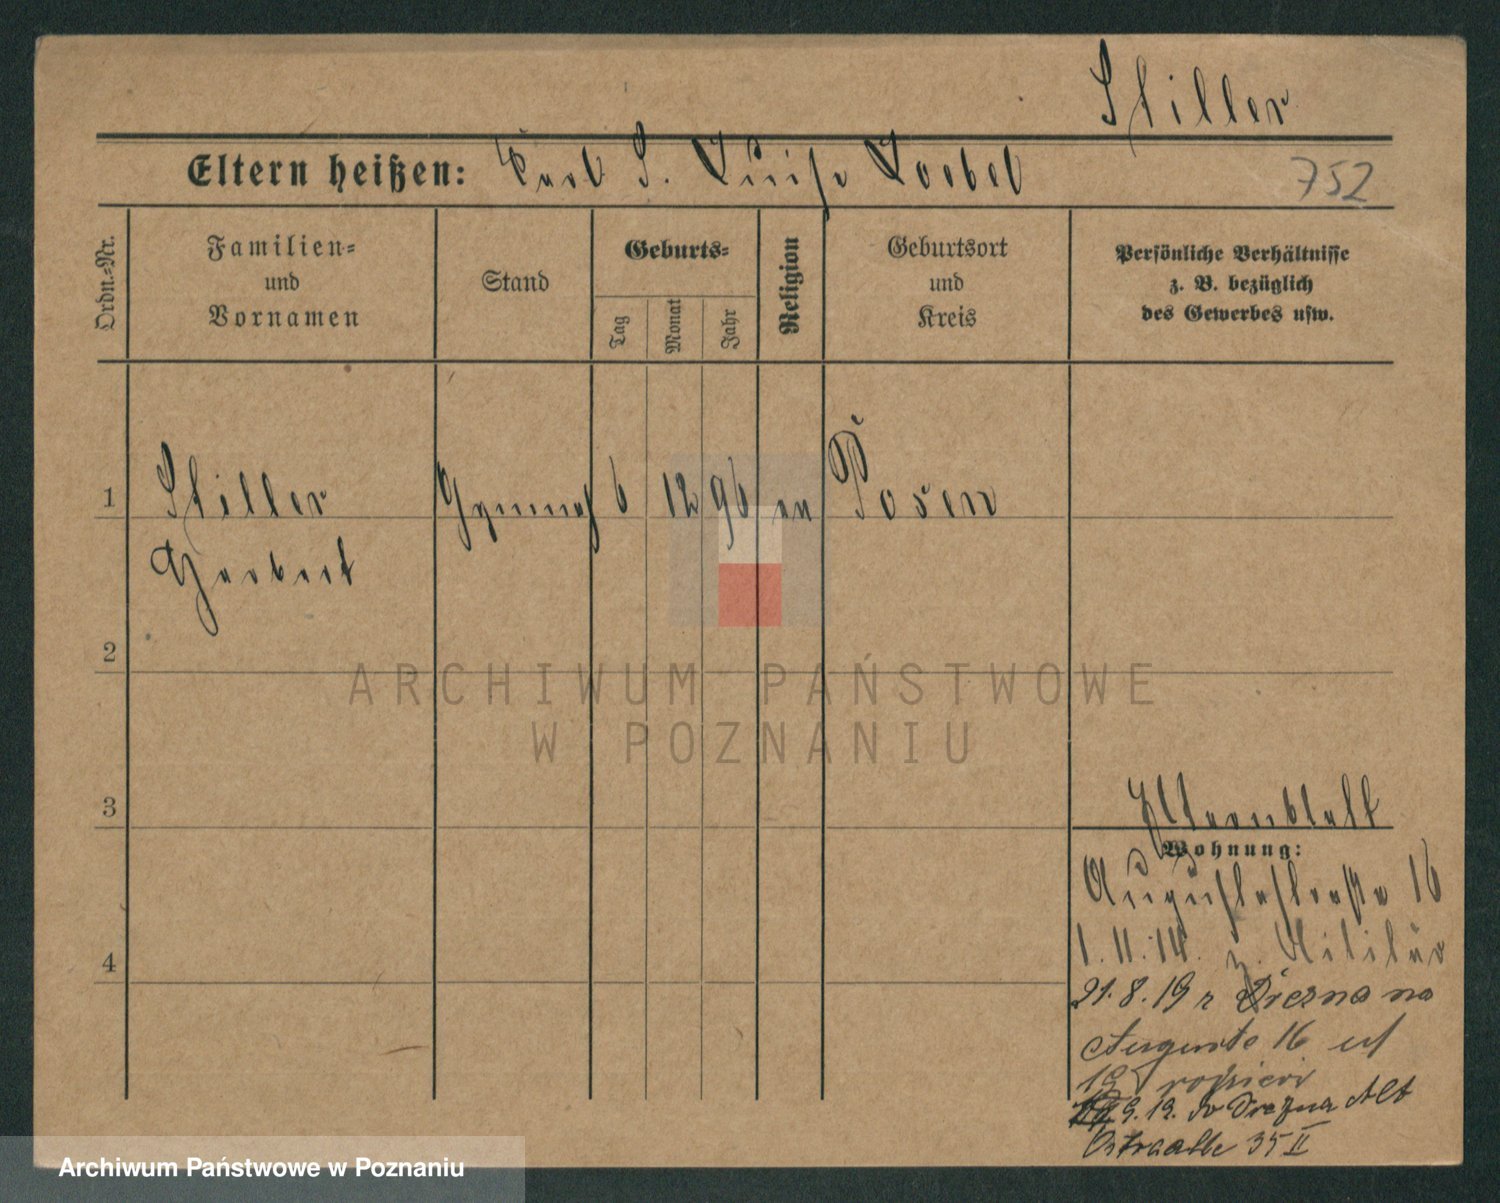 Stiller
Eltern heißen: Karl S. Luise Loebel
752
Ordn.-Nr.
Familien-
und
Vornamen
Stand
Geburts-
Tag
Monat
Jahr
Religion
Geburtsort
und
Kreis
Persönliche Verhältnisse
z. B. bezüglich
des Gewerbes usw.
1 Stiller Gymnas 6 12 96 ev Posen
Herbert
2
ARCHIWUM PAŃSTWOWE
W POZNANIU
3
Elternblatt
Wohnung:
Augustastraße 16
1.11.14. z. Militär
4
21.8.19 z Drezna na
Auguste 16 u
9.19. do Drezna Alt
35 II
Archiwum Państwowe w Poznaniu